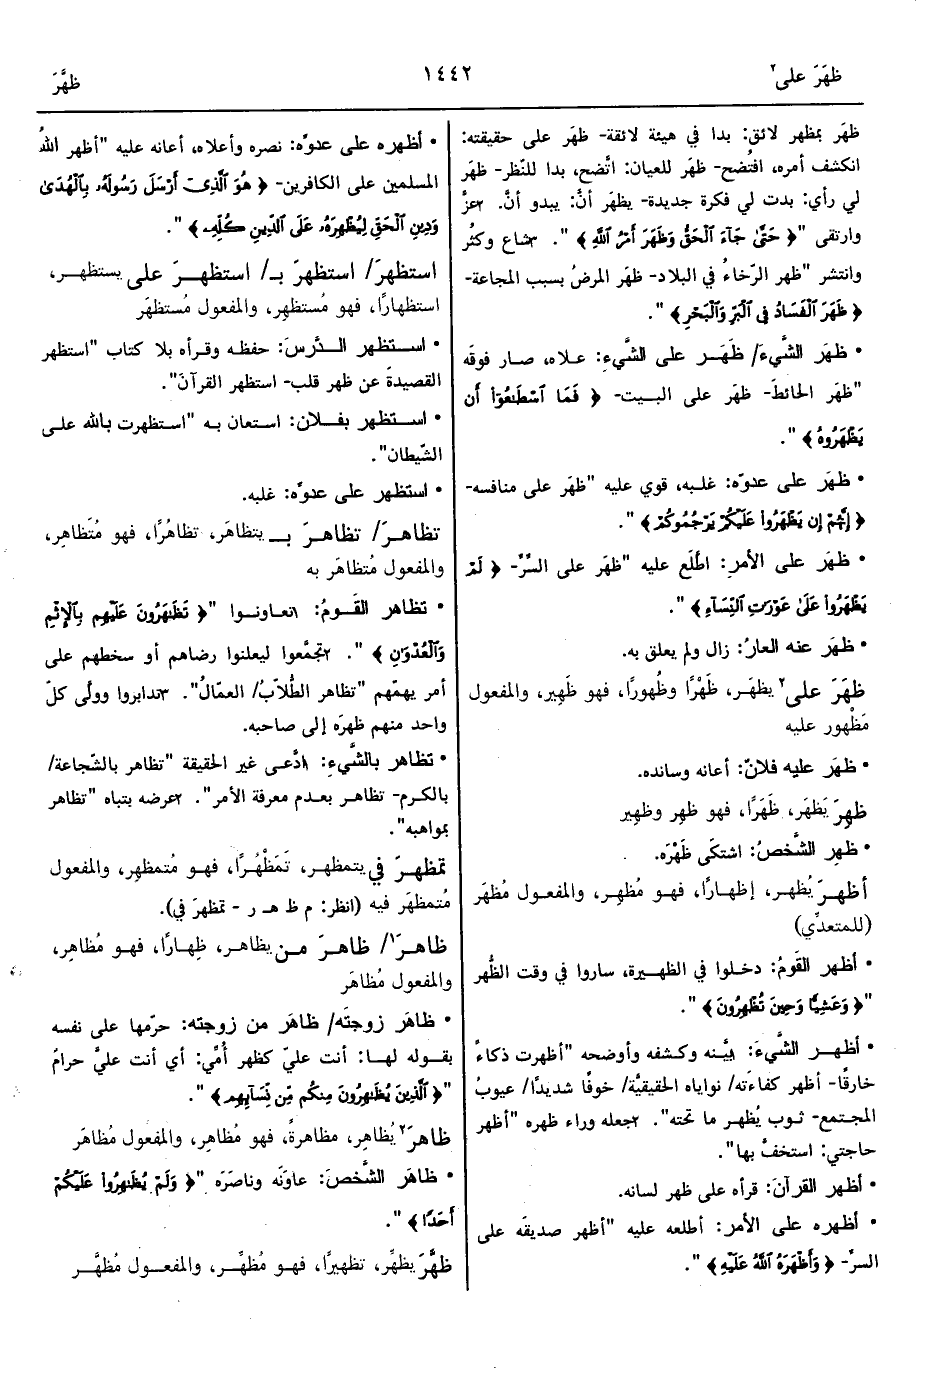 ظهَرَ على٢
١٤٤٢
ظهَّرَ
ظهَر بمظهر لائق: بدا في هيئة لائقة- ظهَر على حقيقته:
انكشف أمره، افتُضح- ظهَر للعيان: اتَّضح، بدا للنّظر- ظهَر
لي رأي: بدت لي فكرة جديدة- يظهَر أنّ: يبدو أنّ. ٢عزَّ
وارتقى "﴿ حَتَّىٰ جَآءَ ٱلْحَقُّ وَظَهَرَ أَمْرُ ٱللَّهِ ﴾". ٣شاع وكثُر
وانتشر "ظهر الرّخاءُ في البلاد- ظهَر المرضُ بسبب المجاعة-
﴿ ظَهَرَ ٱلْفَسَادُ فِى ٱلْبَرِّ وَٱلْبَحْرِ ﴾".
• ظهَر الشَّيءَ/ ظهَر على الشَّيءِ: علاه، صار فوقَه
"ظهَر الحائطَ- ظهَر على البيت- ﴿ فَمَا ٱسْطَـٰعُوٓا۟ أَن
يَظْهَرُوهُ ﴾".
• ظهَر على عدوّه: غلبه، قوي عليه "ظهَر على منافسه-
﴿ إِنَّهُمْ إِن يَظْهَرُوا۟ عَلَيْكُمْ يَرْجُمُوكُمْ ﴾".
• ظهَر على الأمرِ: اطّلع عليه "ظهَر على السِّرّ- ﴿ لَمْ
يَظْهَرُوا۟ عَلَىٰ عَوْرَٰتِ ٱلنِّسَآءِ ﴾".
• ظهَر عنه العارُ: زال ولم يعلق به.
ظهَرَ على٢ يظهَر، ظَهْرًا وظُهورًا، فهو ظَهِير، والمفعول
مَظْهور عليه
• ظهَر عليه فلانٌ: أعانه وسانده.
ظهِرَ يَظهَر، ظَهَرًا، فهو ظهِر وظهِير
• ظهِر الشَّخصُ: اشتكَى ظَهْرَه.
أظهرَ يُظهر، إظهارًا، فهو مُظهِر، والمفعول مُظهَر
(للمتعدِّي)
• أظهر القَومُ: دخلوا في الظهيرة، ساروا في وقت الظُّهر
"﴿ وَعَشِيًّا وَحِينَ تُظْهِرُونَ ﴾".
• أظهر الشَّيءَ: ١بيَّنه وكشفه وأوضحه "أظهرت ذكاءً
خارقًا- أظهر كفاءَته/ نواياه الحقيقيَّة/ خوفًا شديدًا/ عيوبُ
المجتمع- ثوب يُظهر ما تحته". ٢جعله وراء ظهره "أظهر
حاجتي: استخفَّ بها".
• أظهر القرآنَ: قرأه على ظهر لسانه.
• أظهره على الأمر: أطلعه عليه "أظهر صديقَه على
السرِّ- ﴿ وَأَظْهَرَهُ ٱللَّهُ عَلَيْهِ ﴾".
• أظهره على عدوِّه: نصره وأعلاه، أعانه عليه "أظهر اللهُ
المسلمين على الكافرين- ﴿ هُوَ ٱلَّذِىٓ أَرْسَلَ رَسُولَهُۥ بِٱلْهُدَىٰ
وَدِينِ ٱلْحَقِّ لِيُظْهِرَهُۥ عَلَى ٱلدِّينِ كُلِّهِۦ ﴾".
استظهرَ/ استظهرَ بـ/ استظهرَ على يستظهر،
استظهارًا، فهو مُستظهِر، والمفعول مُستظهَر
• استظهر الدَّرسَ: حفظه وقرأه بلا كتاب "استظهر
القصيدةَ عن ظهر قلب- استظهر القرآنَ".
• استظهر بفلان: استعان به "استظهرت بالله على
الشّيطان".
• استظهر على عدوِّه: غلبه.
تظاهرَ/ تظاهرَ بـ يتظاهَر، تظاهُرًا، فهو مُتظاهِر،
والمفعول مُتظاهَر به
• تظاهر القَومُ: ١تعاونوا "﴿ تَظَـٰهَرُونَ عَلَيْهِم بِٱلْإِثْمِ
وَٱلْعُدْوَٰنِ ﴾". ٢تجمَّعوا ليعلنوا رضاهم أو سخطهم على
أمر يهمّهم "تظاهر الطُّلاّبُ/ العمّالُ". ٣تدابروا وولَّى كلّ
واحد منهم ظهرَه إلى صاحبه.
• تظاهر بالشَّيءِ: ١ادَّعى غير الحقيقة "تظاهر بالشّجاعة/
بالكرم- تظاهر بعدم معرفة الأمر". ٢عرضه بتباه "تظاهر
بمواهبه".
تمظهرَ في يتمظهر، تَمَظْهُرًا، فهو مُتمظهِر، والمفعول
مُتمظهَر فيه (انظر: م ظ هـ ر - تمظهرَ في).
ظاهرَ١/ ظاهرَ من يظاهر، ظِهارًا، فهو مُظاهِر،
والمفعول مُظاهَر
• ظاهَر زوجتَه/ ظاهَر من زوجته: حرّمها على نفسه
بقوله لها: أنت عليّ كظهر أُمِّي: أي أنت عليَّ حرامٌ
"﴿ ٱلَّذِينَ يُظَـٰهِرُونَ مِنكُم مِّن نِّسَآئِهِم ﴾".
ظاهرَ٢ يُظاهِر، مظاهرةً، فهو مُظاهِر، والمفعول مُظاهَر
• ظاهَر الشَّخصَ: عاوَنَه وناصَرَه "﴿ وَلَمْ يُظَـٰهِرُوا۟ عَلَيْكُمْ
أَحَدًا ﴾".
ظهَّرَ يظهِّر، تظهيرًا، فهو مُظهِّر، والمفعول مُظهَّر